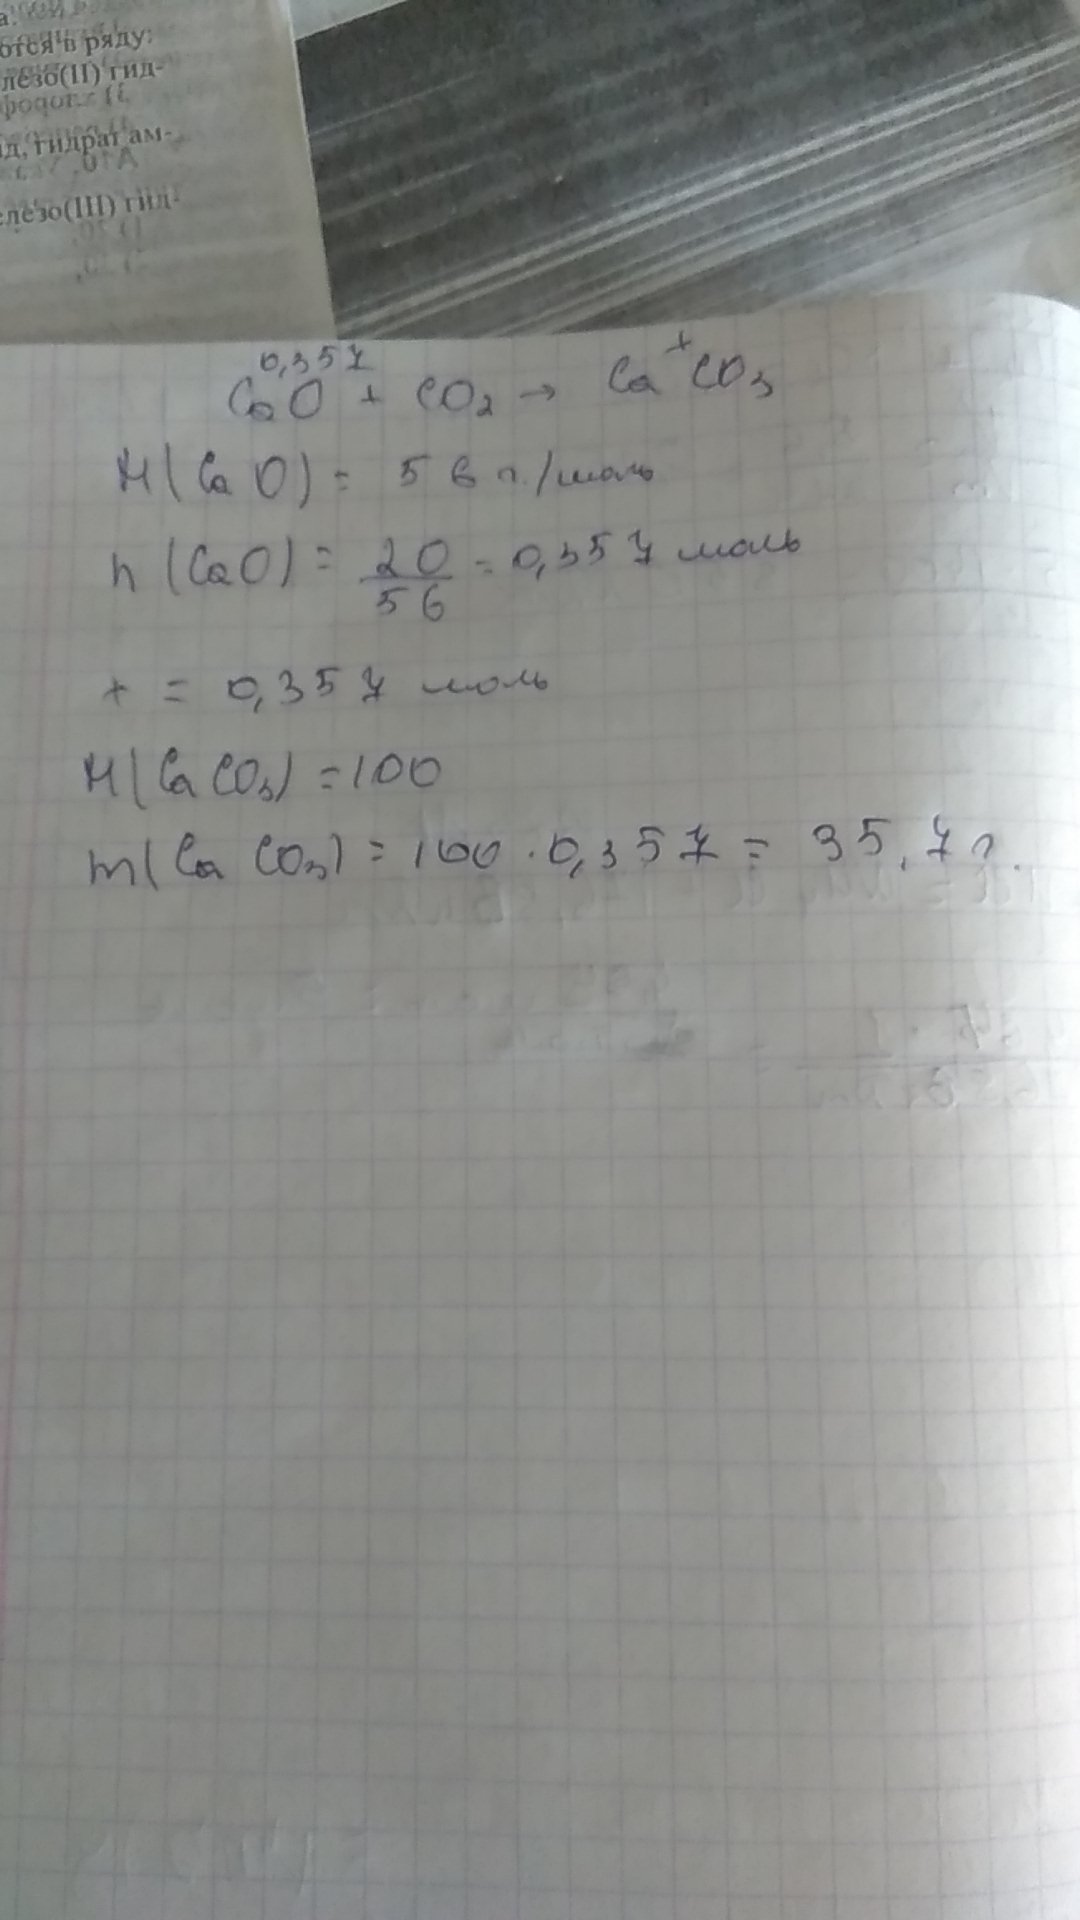 а.
ются в ряду:
лезо(II) гид-
ид, гидрат ам-
елезо(III) гид-
0,357 x
CaO + CO2 → CaCO3
M(CaO) = 56 г/моль
n(CaO) = 20/56 = 0,357 моль
x = 0,357 моль
M(CaCO3) = 100
m(CaCO3) = 100 · 0,357 = 35,7 г.